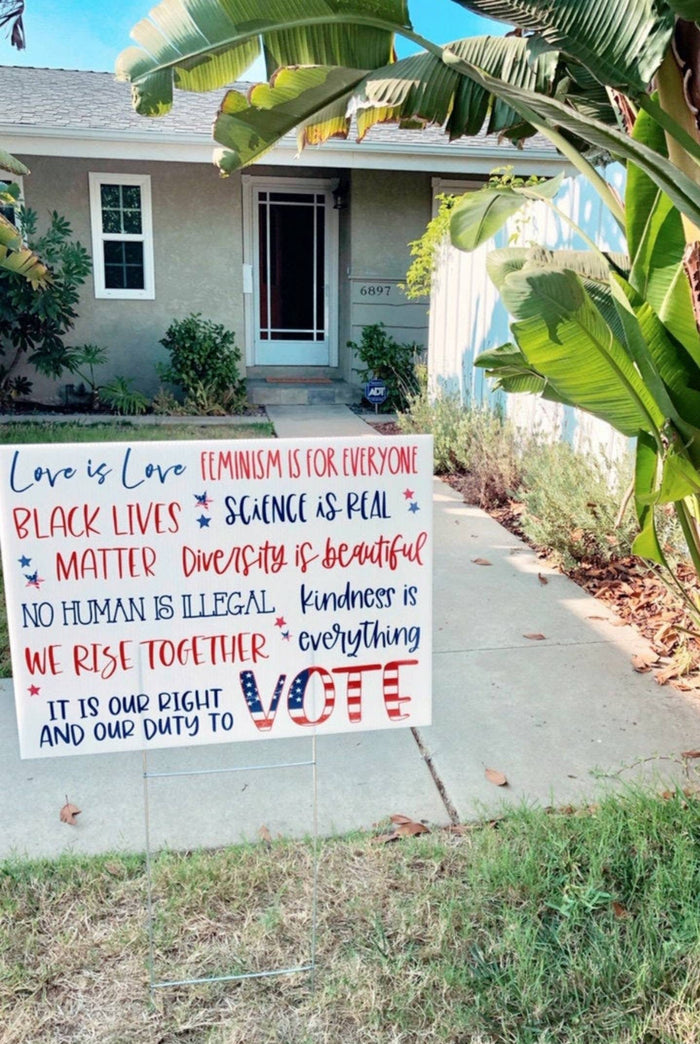 6897
ADT
Love is Love FEMINISM IS FOR EVERYONE
BLACK LIVES SCIENCE is REAL
MATTER Diversity is beautiful
NO HUMAN IS ILLEGAL kindness is
WE RISE TOGETHER everything
IT IS OUR RIGHT
AND OUR DUTY TO VOTE